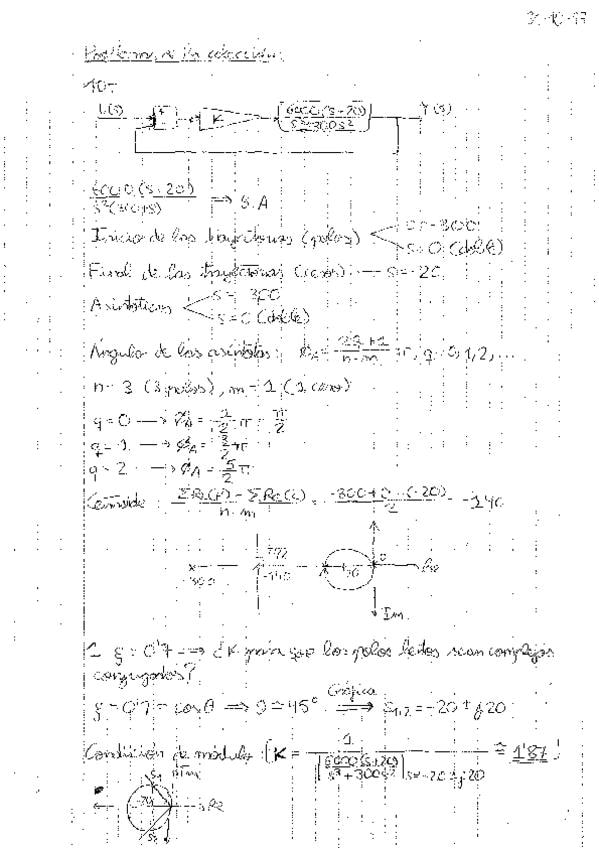 Problemas de la colección:
10-
U(s) + K 6000 (s+20) / s³+300s² Y(s)
6000 (s+20) / s²(300+s) → B.A
Inicio de las trayectorias (polos) s=-300
s=0 (doble)
Final de las trayectorias (ceros) — s=-20
Asintóticas s= 300
s=0 (doble)
Ángulo de las asíntotas: ϕA = (2q+1)/(n-m) π, q=0,1,2,...
n=3 (3 polos), m=1 (1 cero)
q=0 → ϕA = 1/2 π = π/2
q=1 → ϕA = 3/2 π
q=2 → ϕA = 5/2 π
Centroide: (ΣRe(P) - ΣRe(C))/(n-m) = (-300+0-(-20))/2 = -140
-300 π/2 -140 0 Re
Im
1 ξ=0'7 → ¿K para que los polos lentos sean complejos
conjugados?
ξ=0'7=cosθ ⇒ θ≅45° Gráfica ⇒ s1,2=-20±j20
Condición de módulo: K = 1 / |6000(s+20) / s³+300s²| s=-20±j20 ≅ 1'87
Im
s1
-20 Re
s2